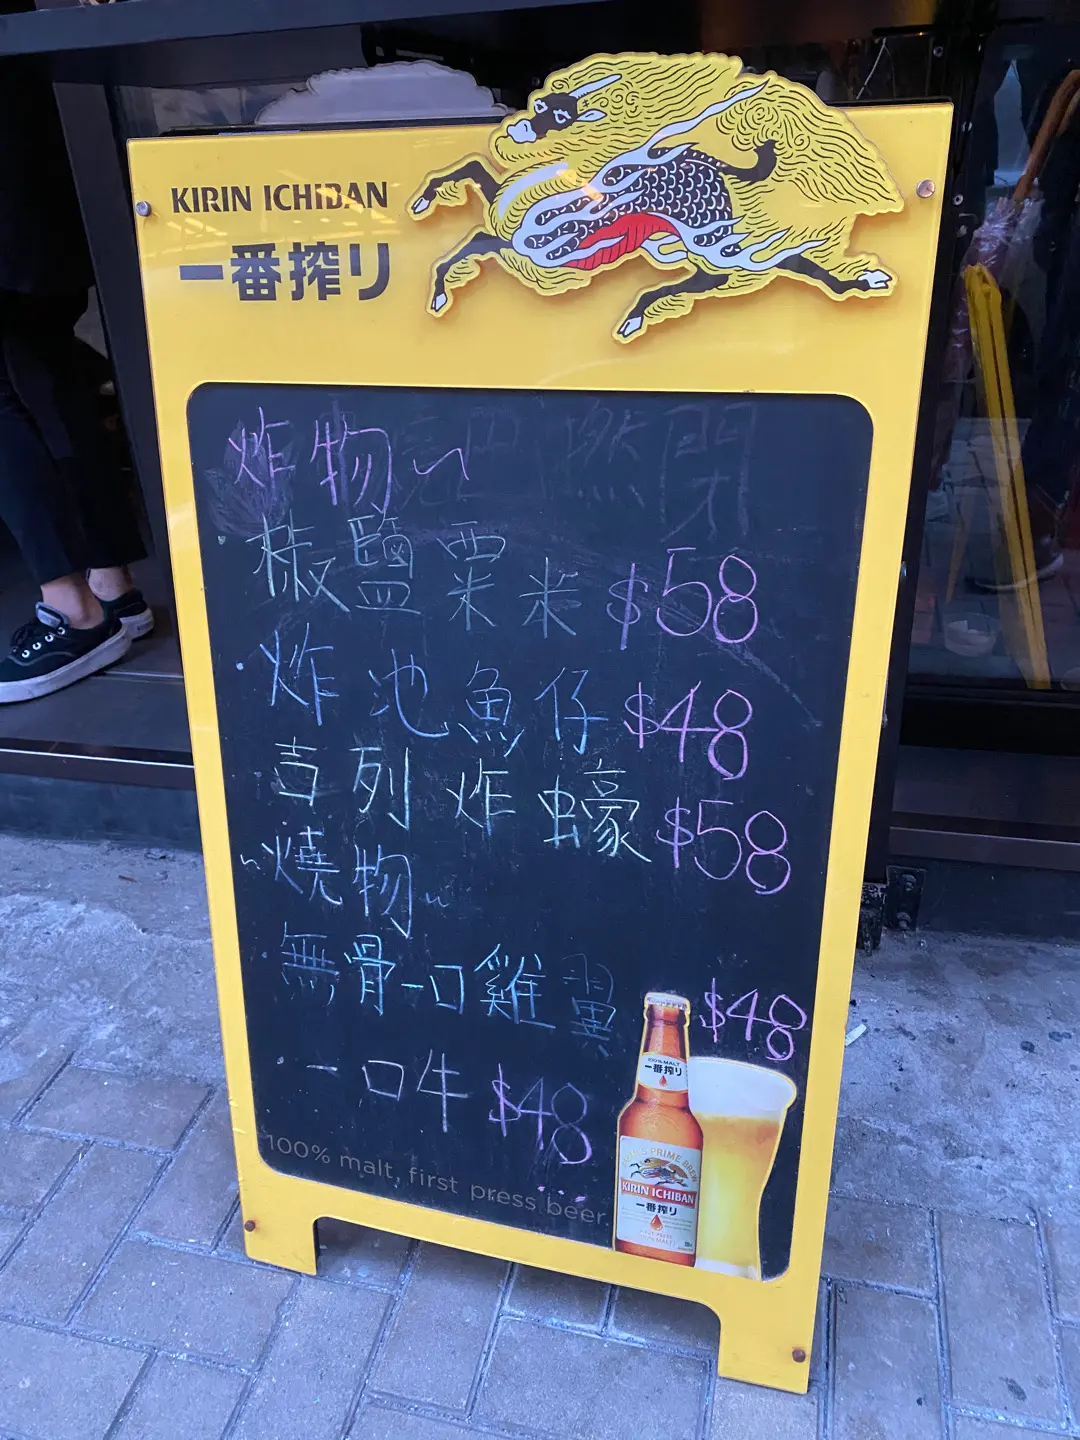 KIRIN ICHIBAN
一番搾り
炸物~
椒鹽粟米 $58
炸池魚仔 $48
吉列炸蠔 $58
~燒物~
無骨一口雞翼 $48
一口牛 $48
100% malt, first press beer.
100% MALT
一番搾り
PRIME BREW
KIRIN ICHIBAN
一番搾り